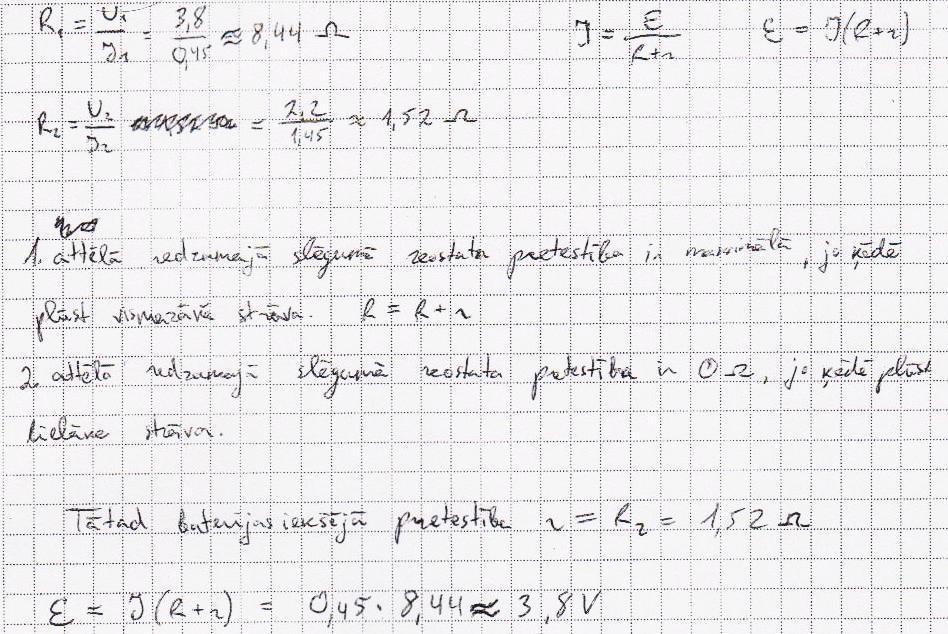 R₁ = U₁/I₁ = 3,8/0,45 ≈ 8,44 Ω    I = ε/(R+r)    ε = I(R+r)
R₂ = U₂/I₂ = 2,2/1,45 ≈ 1,52 Ω
1. attēlā redzamajā slēgumā reostata pretestība ir maksimālā, jo ķēdē
plūst vismazākā strāva. R = R + r
2. attēlā redzamajā slēgumā reostata pretestība ir 0 Ω, jo ķēdē plūst
lielāka strāva.
Tātad baterijas iekšējā pretestība r = R₂ = 1,52 Ω
ε = I(R+r) = 0,45 · 8,44 ≈ 3,8 V